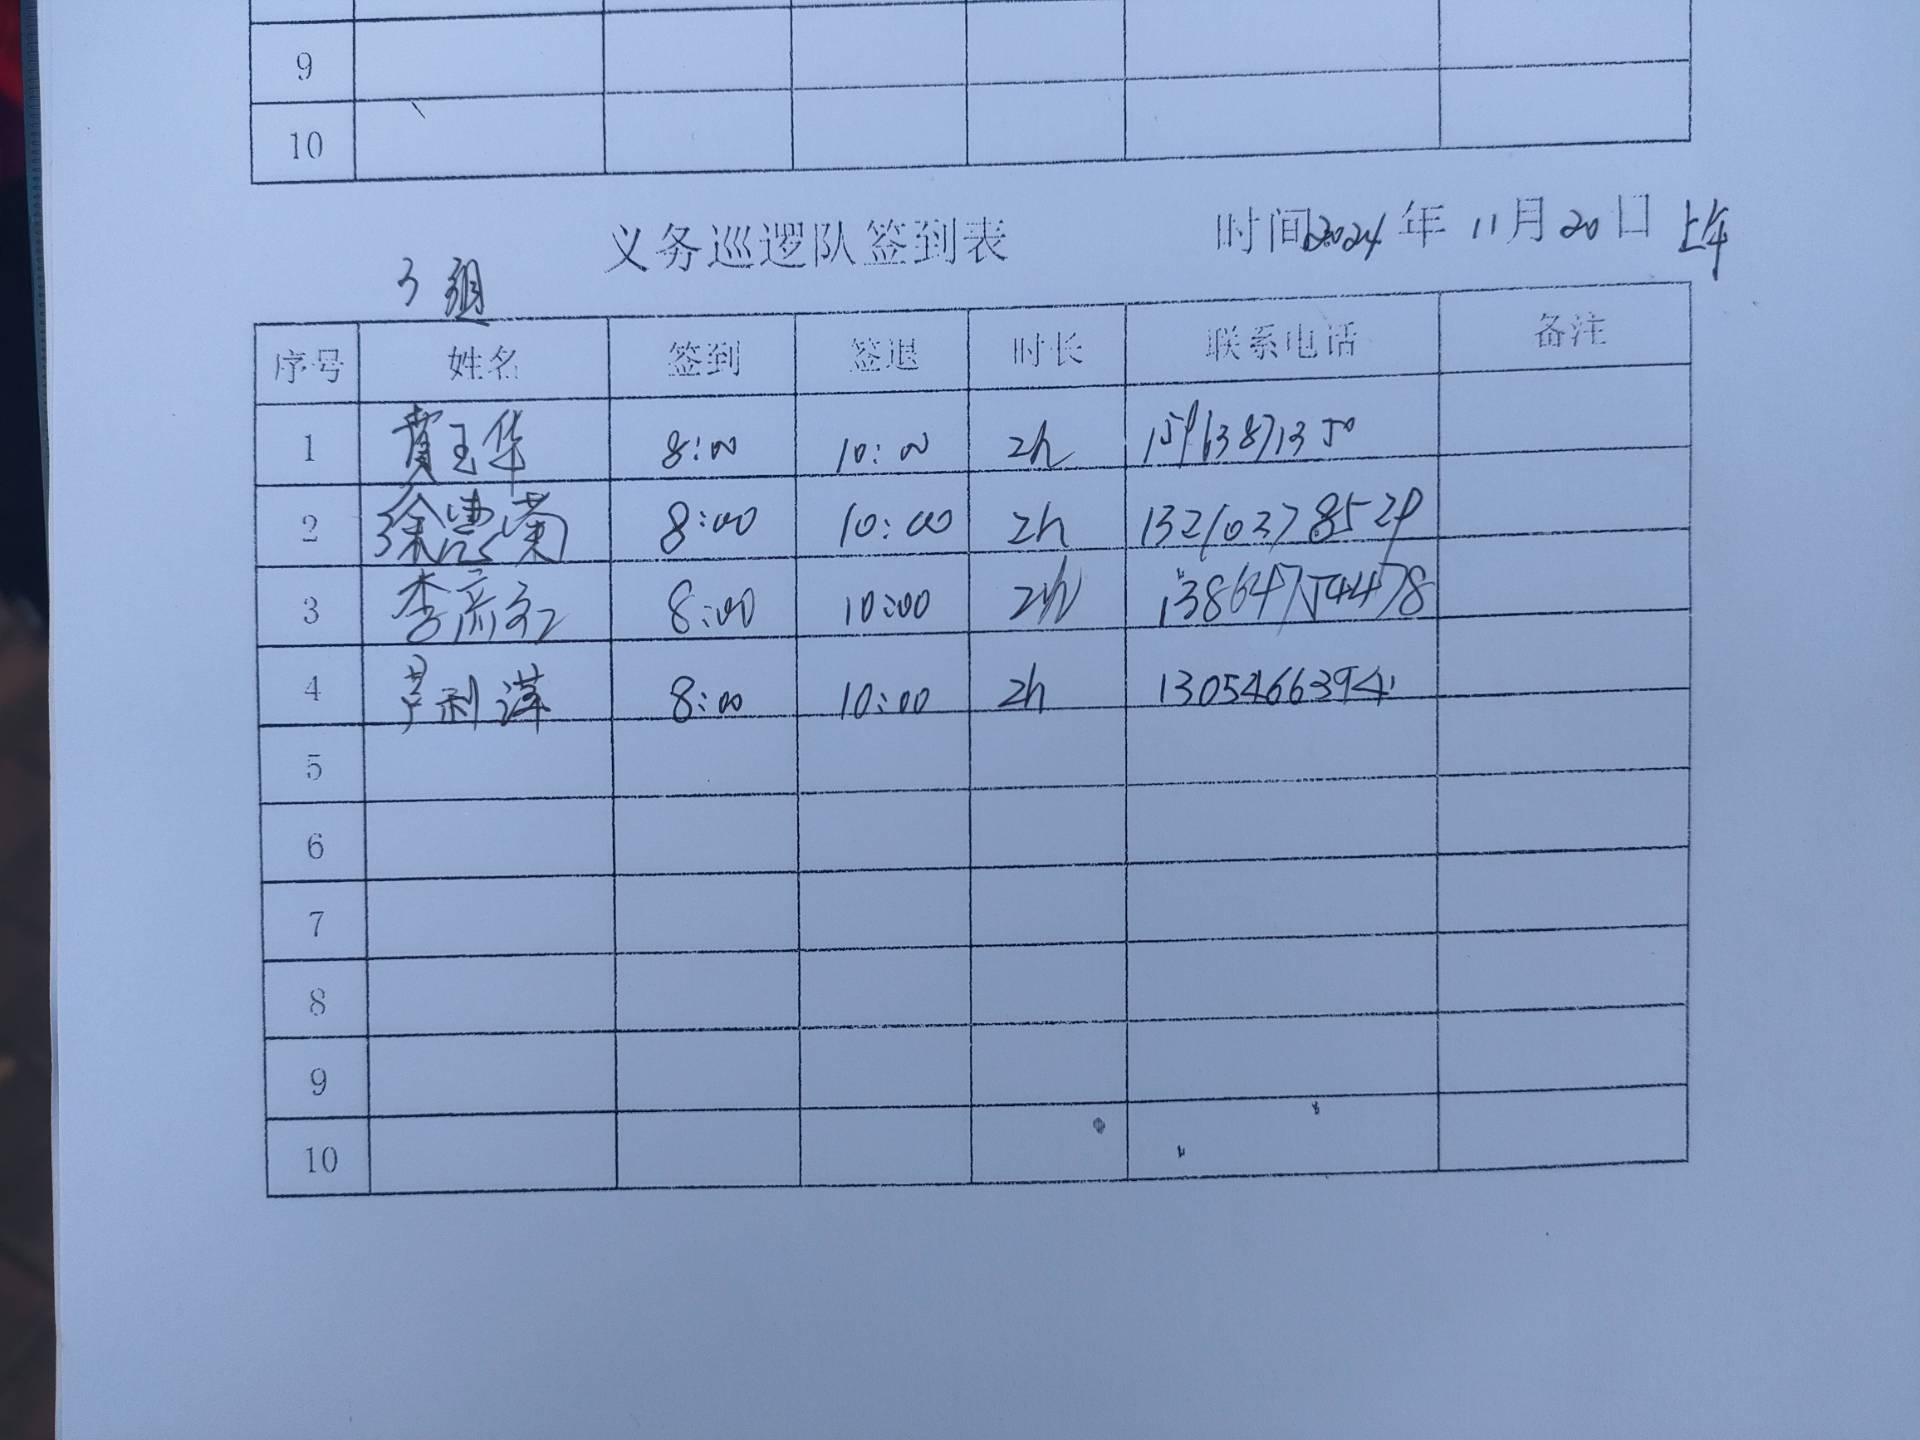 9
10
义务巡逻队签到表 时间2024年11月20日 上午
3组
序号 姓名 签到 签退 时长 联系电话 备注
1 贾玉华 8:00 10:00 2h 15963871350
2 徐惠菊 8:00 10:00 2h 13210378529
3 李彦红 8:00 10:00 2h 13864754478
4 芦利萍 8:00 10:00 2h 13054663941
5
6
7
8
9
10